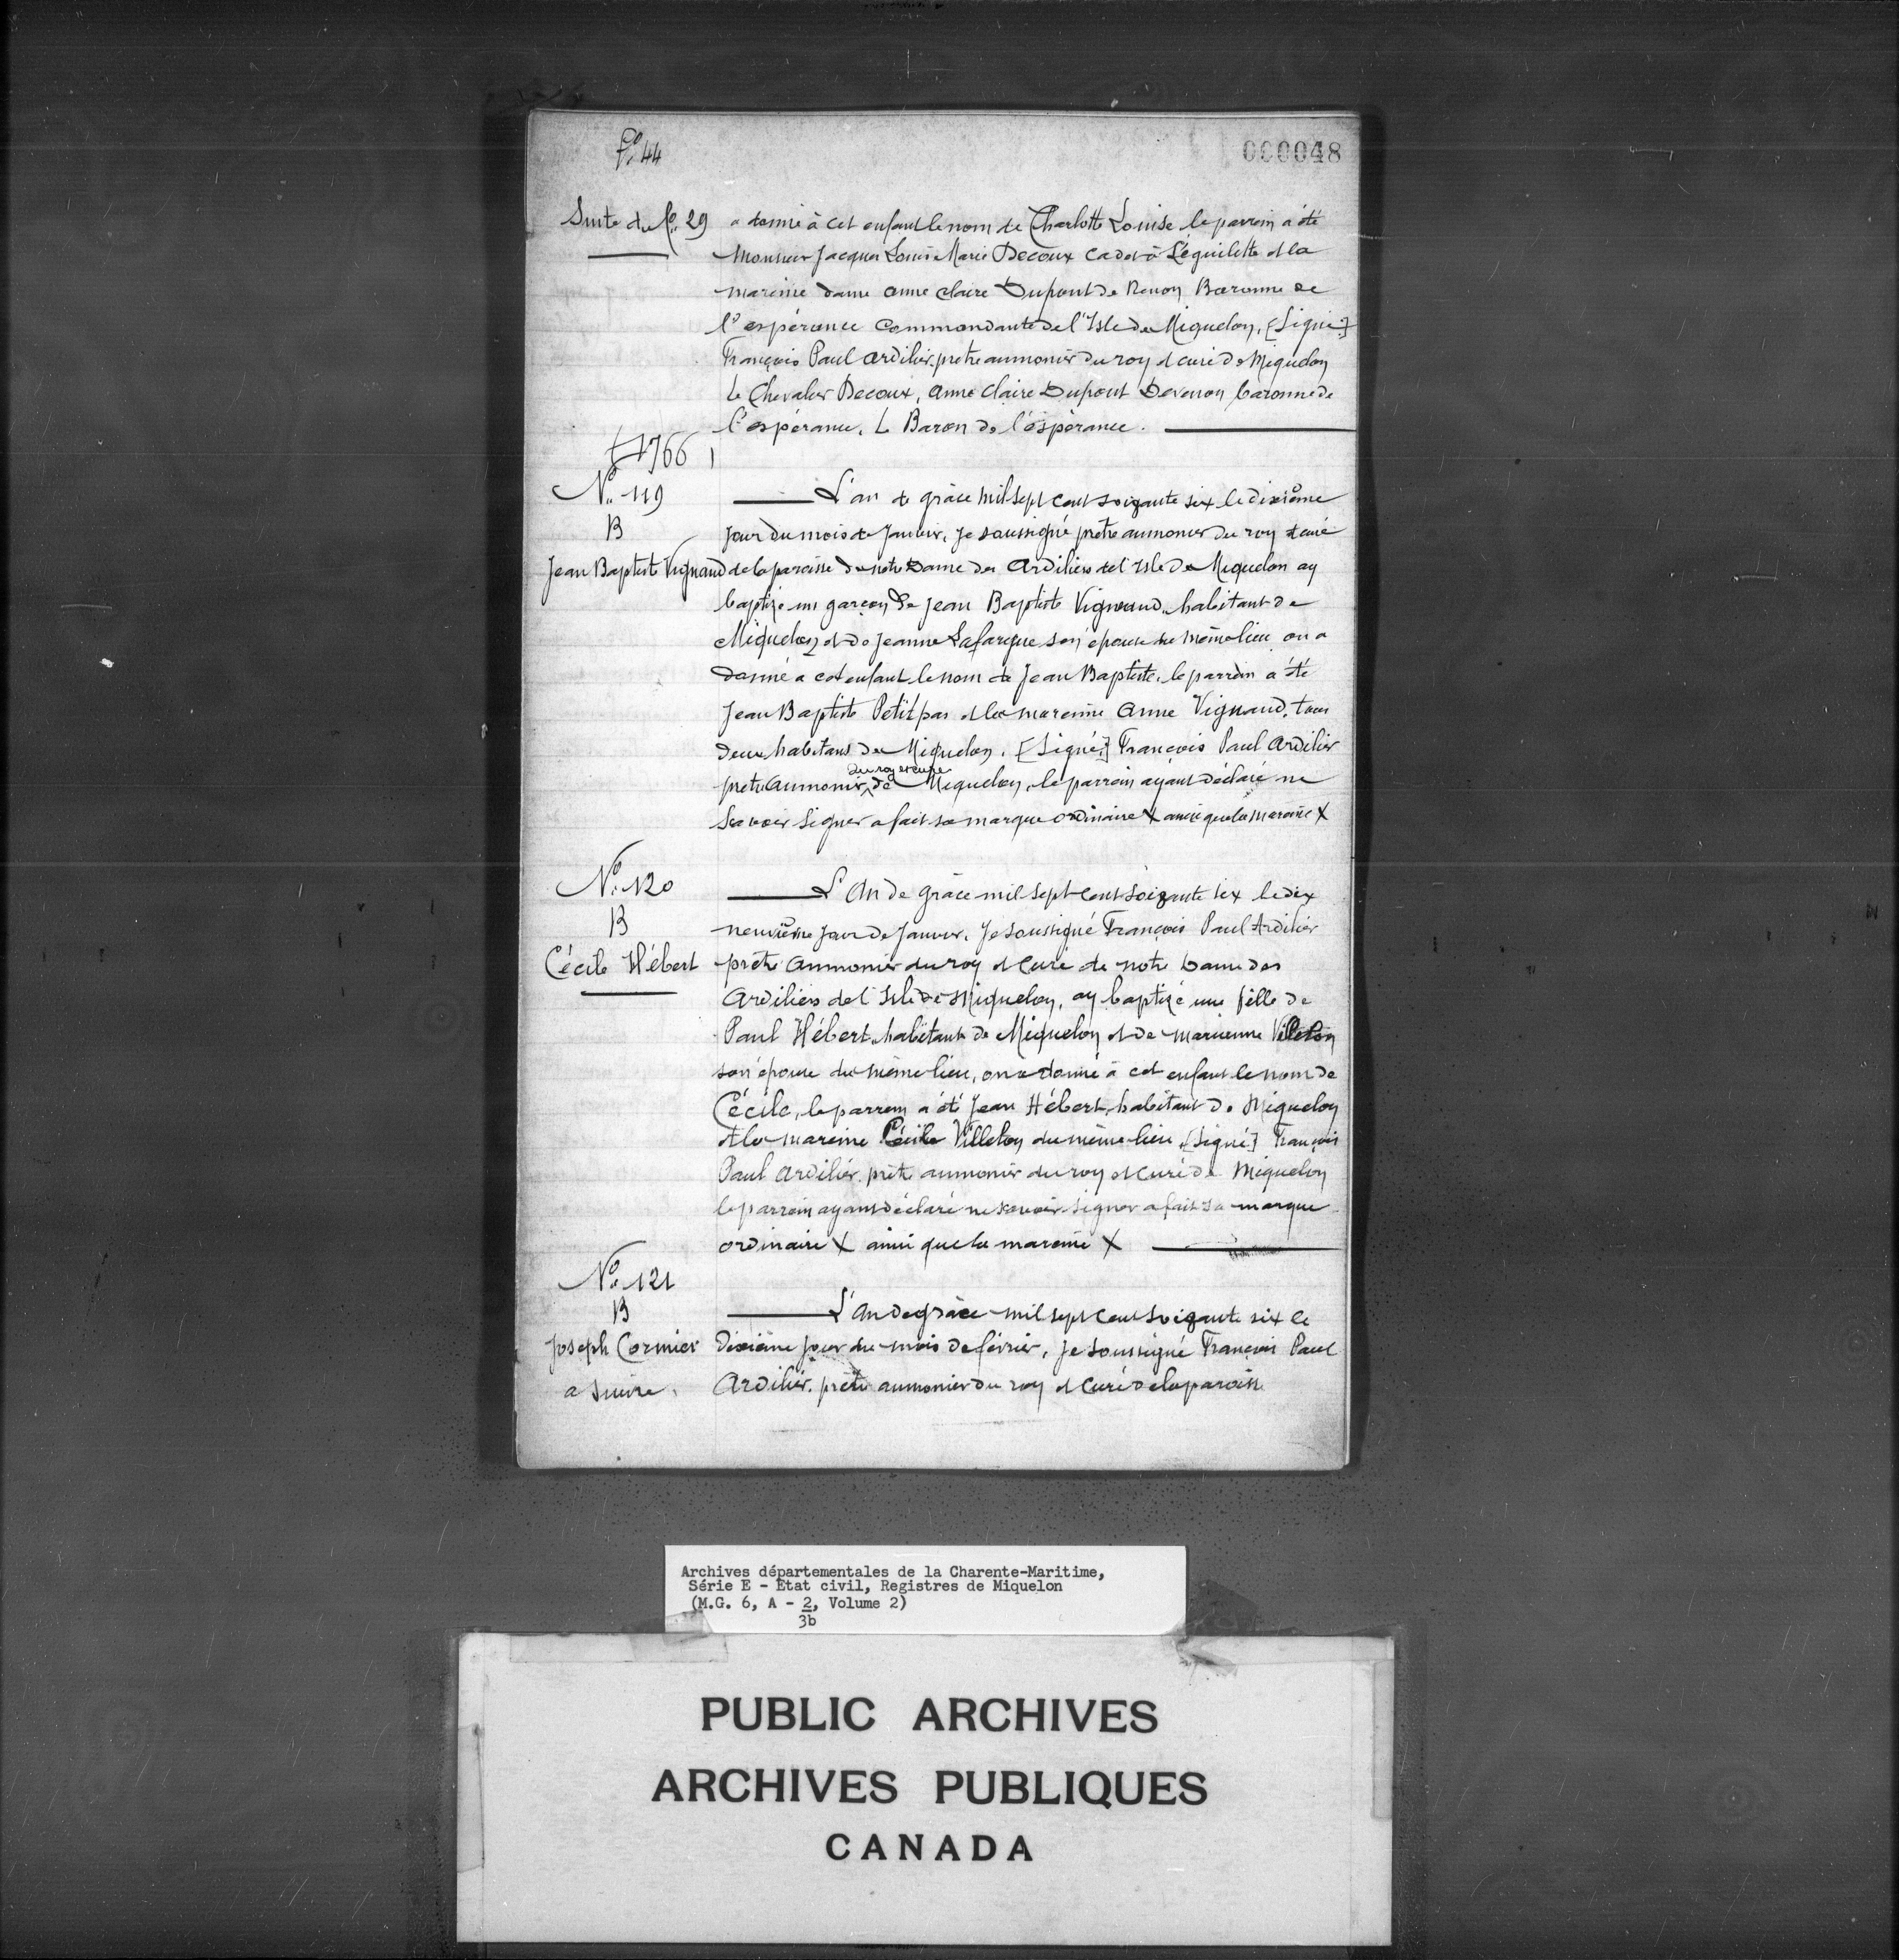 fo. 44
000048
Suite du fo. 29
a donné à cet enfant le nom de Charlotte Louise le parrein a été
Monsieur Jacques Louis Marie Decoux cadet à L'éguilette et la
mareinne dame anne Claire Dupont de Renon Baronne de
l'espérance Commandante de l'Isle de Miquelon, [Signé]
François Paul ardilier, pretre aumonier du roy et curé de Miquelon
Le Chevalier Decoux, anne Claire Dupont Derenon baronne de
l'espérance, Le Baron de l'éspérance.
1766
No. 119
B
Jean Baptiste Vignaud
L'an de grâce mil sept cent soixante six le dixième
jour du mois de Janvier, Je soussigné pretre aumonier du roy et curé
de la paroisse de notre Dame des Ardiliers de l'isle de Miquelon ay
baptizé un garçon de Jean Baptiste Vignaud, habitant de
Miquelon et de Jeanne Lafargue son épouse du même lieu on a
donné a cet enfant le nom de Jean Baptiste, le parrein a été
Jean Baptiste Petitpas et la mareinne Anne Vignaud, tous
deux habitans de Miquelon. [Signé] François Paul Ardilier
du roy et curé
pretre aumonier de Miquelon, le parrein ayant déclaré ne
Savoir Signer a fait sa marque ordinaire X ainsi que la mareinne X
No. 120
B
Cécile Hébert
L'An de grâce mil sept cent soixante six le dix
neuvième jour de Janvier, Je soussigné François Paul Ardilier
prêtre aumonier du roy et Curé de notre Dame des
Ardiliers de l'Isle de Miquelon, ay baptizé une fille de
Paul Hébert, habitant de Miquelon et de marienne Villeloy
son épouse du même lieu, on a donné à cet enfant le nom de
Cécile, le parrein a été Jean Hébert, habitant de Miquelon
et la mareinne Cécile Villeloy du même lieu [Signé] François
Paul Ardilier, prêtre aumonier du roy et Curé de Miquelon
le parrein ayant déclaré ne savoir signer a fait sa marque
ordinaire X ainsi que la mareinne X
No. 121
B
Joseph Cormier
a suivre.
L'An de grâce mil sept cent soixante six le
Dixième jour du mois de février, Je soussigné François Paul
Ardilier, prêtre aumonier du roy et Curé de la paroisse
Archives départementales de la Charente-Maritime,
Série E - Etat civil, Registres de Miquelon
(M.G. 6, A - 2, Volume 2)
3b
PUBLIC ARCHIVES
ARCHIVES PUBLIQUES
CANADA